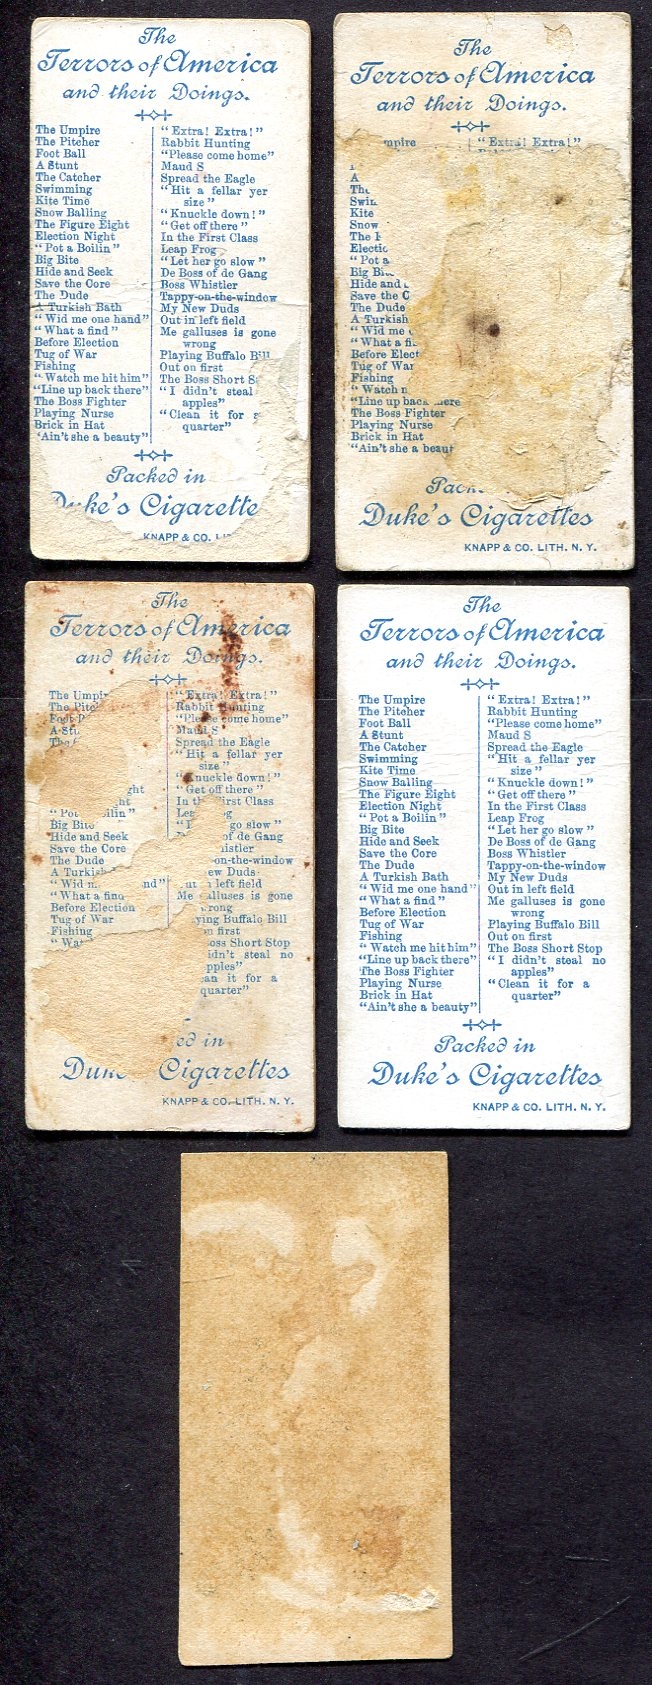 The
Terrors of America
and their Doings.
The Umpire
The Pitcher
Foot Ball
A Stunt
The Catcher
Swimming
Kite Time
Snow Balling
The Figure Eight
Election Night
"Pot a Boilin"
Big Bite
Hide and Seek
Save the Core
The Dude
A Turkish Bath
"Wid me one hand"
"What a find"
Before Election
Tug of War
Fishing
"Watch me hit him"
"Line up back there"
The Boss Fighter
Playing Nurse
Brick in Hat
"Ain't she a beauty"
"Extra! Extra!"
Rabbit Hunting
"Please come home"
Maud S
Spread the Eagle
"Hit a fellar yer
size"
"Knuckle down!"
"Get off there"
In the First Class
Leap Frog
"Let her go slow"
De Boss of de Gang
Boss Whistler
Tappy-on-the-window
My New Duds
Out in left field
Me galluses is gone
wrong
Playing Buffalo Bill
Out on first
The Boss Short S
"I didn't steal
apples"
"Clean it for a
quarter"
Packed in
Duke's Cigarette
KNAPP & CO. LI
The
Terrors of America
and their Doings.
mpire
A
Swi
Kite
Snow
The
Electi
"Pot a
Big Bi
Hide and
Save the C
The Dude
A Turkish
"Wid me
"What a fi
Before Elect
Tug of War
Fishing
"Watch
"Line up back there
The Boss Fighter
Playing Nurse
Brick in Hat
"Ain't she a beaut
"Extra! Extra!"
Pack
Duke's Cigarettes
KNAPP & CO. LITH. N. Y.
The
Terrors of America
and their Doings.
The Umpi
The Pitc
Foot
A St
The
ght
ht
"Pot Boilin"
Big Bite
Hide and Seek
Save the Core
The Dude
A Turki
"Wid nd"
"What a find
Before Election
Tug of War
Fishing
"Wat
"Extra! Extra!"
Rabbit Hunting
"Please come home"
Maud S
Spread the Eagle
"Hit a fellar yer
size"
"Knuckle down!"
"Get off there"
In th First Class
Lea
go slow"
of de Gang
histler
on-the-window
ew Duds
ut in left field
Me galluses is gone
rong
ying Buffalo Bill
n first
oss Short Stop
idn't steal no
pples"
ean it for a
quarter"
ed in
Duk Cigarettes
KNAPP & CO. LITH. N. Y.
The
Terrors of America
and their Doings.
The Umpire
The Pitcher
Foot Ball
A Stunt
The Catcher
Swimming
Kite Time
Snow Balling
The Figure Eight
Election Night
"Pot a Boilin"
Big Bite
Hide and Seek
Save the Core
The Dude
A Turkish Bath
"Wid me one hand"
"What a find"
Before Election
Tug of War
Fishing
"Watch me hit him"
"Line up back there"
The Boss Fighter
Playing Nurse
Brick in Hat
"Ain't she a beauty"
"Extra! Extra!"
Rabbit Hunting
"Please come home"
Maud S
Spread the Eagle
"Hit a fellar yer
size"
"Knuckle down!"
"Get off there"
In the First Class
Leap Frog
"Let her go slow"
De Boss of de Gang
Boss Whistler
Tappy-on-the-window
My New Duds
Out in left field
Me galluses is gone
wrong
Playing Buffalo Bill
Out on first
The Boss Short Stop
"I didn't steal no
apples"
"Clean it for a
quarter"
Packed in
Duke's Cigarettes
KNAPP & CO. LITH. N. Y.